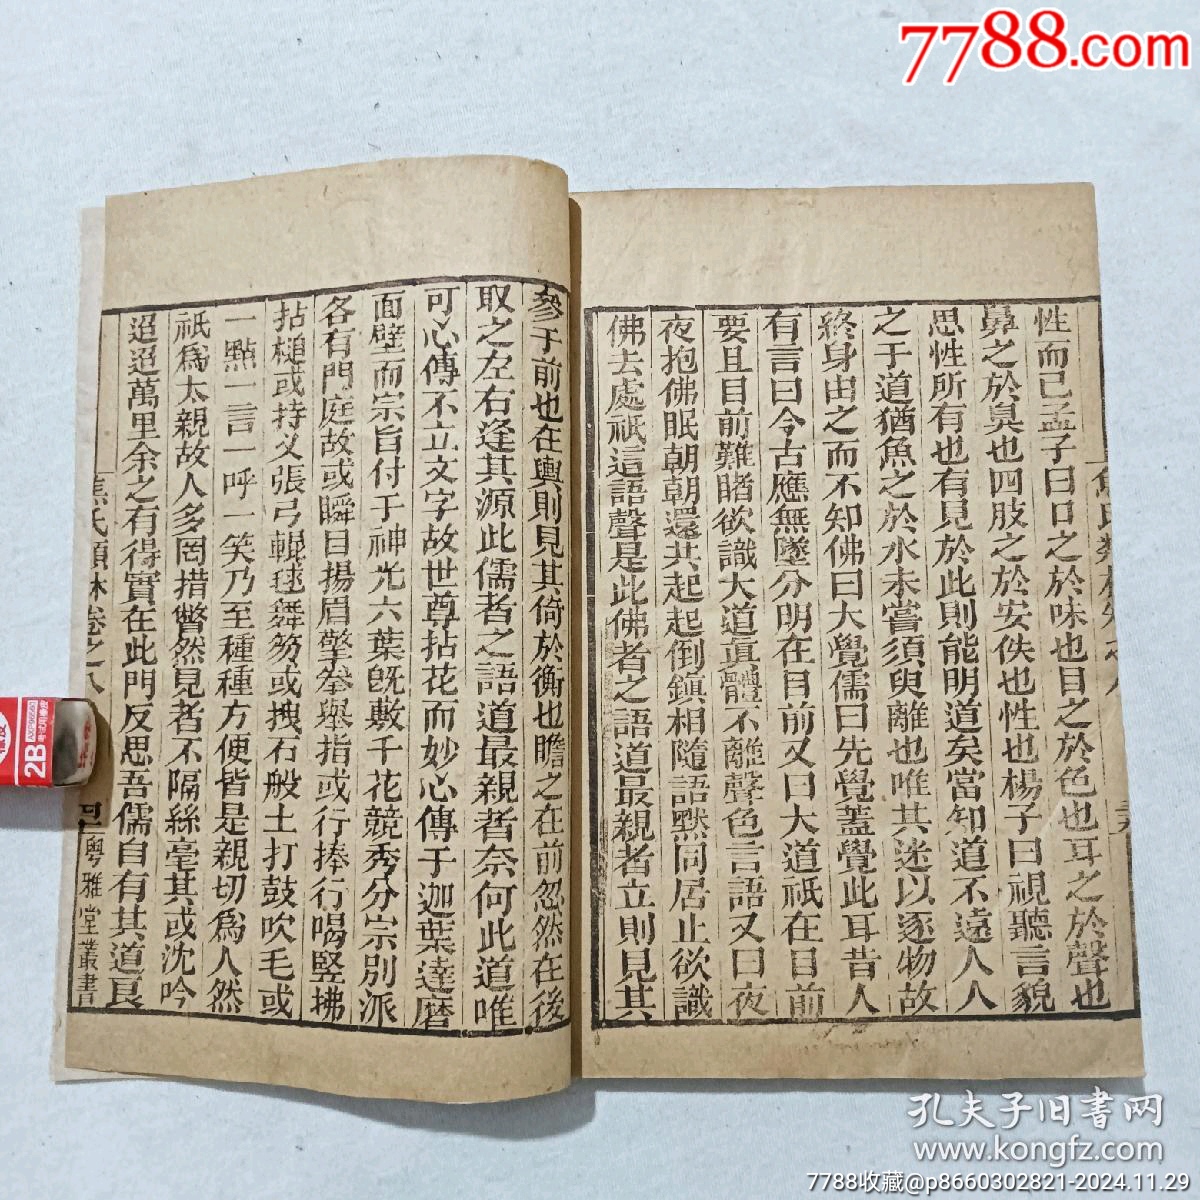 7788.com
性而已孟子曰口之於味也目之於色也耳之於聲也
鼻之於臭也四肢之於安佚也性也楊子曰視聽言貌
思性所有也有見於此則能明道矣當知道不遠人人
之于道猶魚之於水未嘗須臾離也唯其迷以逐物故
終身由之而不知佛曰大覺儒曰先覺蓋覺此耳昔人
有言曰今古應無墜分明在目前又曰大道祇在目前
要且目前難睹欲識大道眞體不離聲色言語又曰夜
夜抱佛眠朝朝還共起起倒鎮相隨語默同居止欲識
佛去處祇這語聲是此佛者之語道最親者立則見其
參于前也在輿則見其倚於衡也瞻之在前忽然在後
取之左右逢其源此儒者之語道最親者奈何此道唯
可心傳不立文字故世尊拈花而妙心傳于迦葉達磨
面壁而宗旨付于神光六葉既敷千花競秀分宗別派
各有門庭故或瞬目揚眉擎拳舉指或行捧行喝豎拂
拈槌或持义張弓輥毬舞笏或拽石般土打鼓吹毛或
一點一言一呼一笑乃至種種方便皆是親切爲人然
祇爲太親故人多罔措瞥然見者不隔絲毫其或沈吟
迢迢萬里余之有得實在此門反思吾儒自有其道良
焦氏類林卷之八
粵雅堂叢書
2B
孔夫子旧書网
www.kongfz.com
7788收藏@p8660302821-2024.11.29